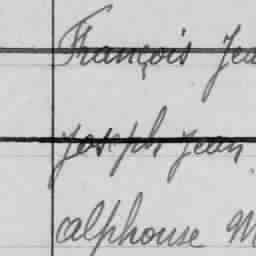 François Jea
Joseph Jean
Alphonse M